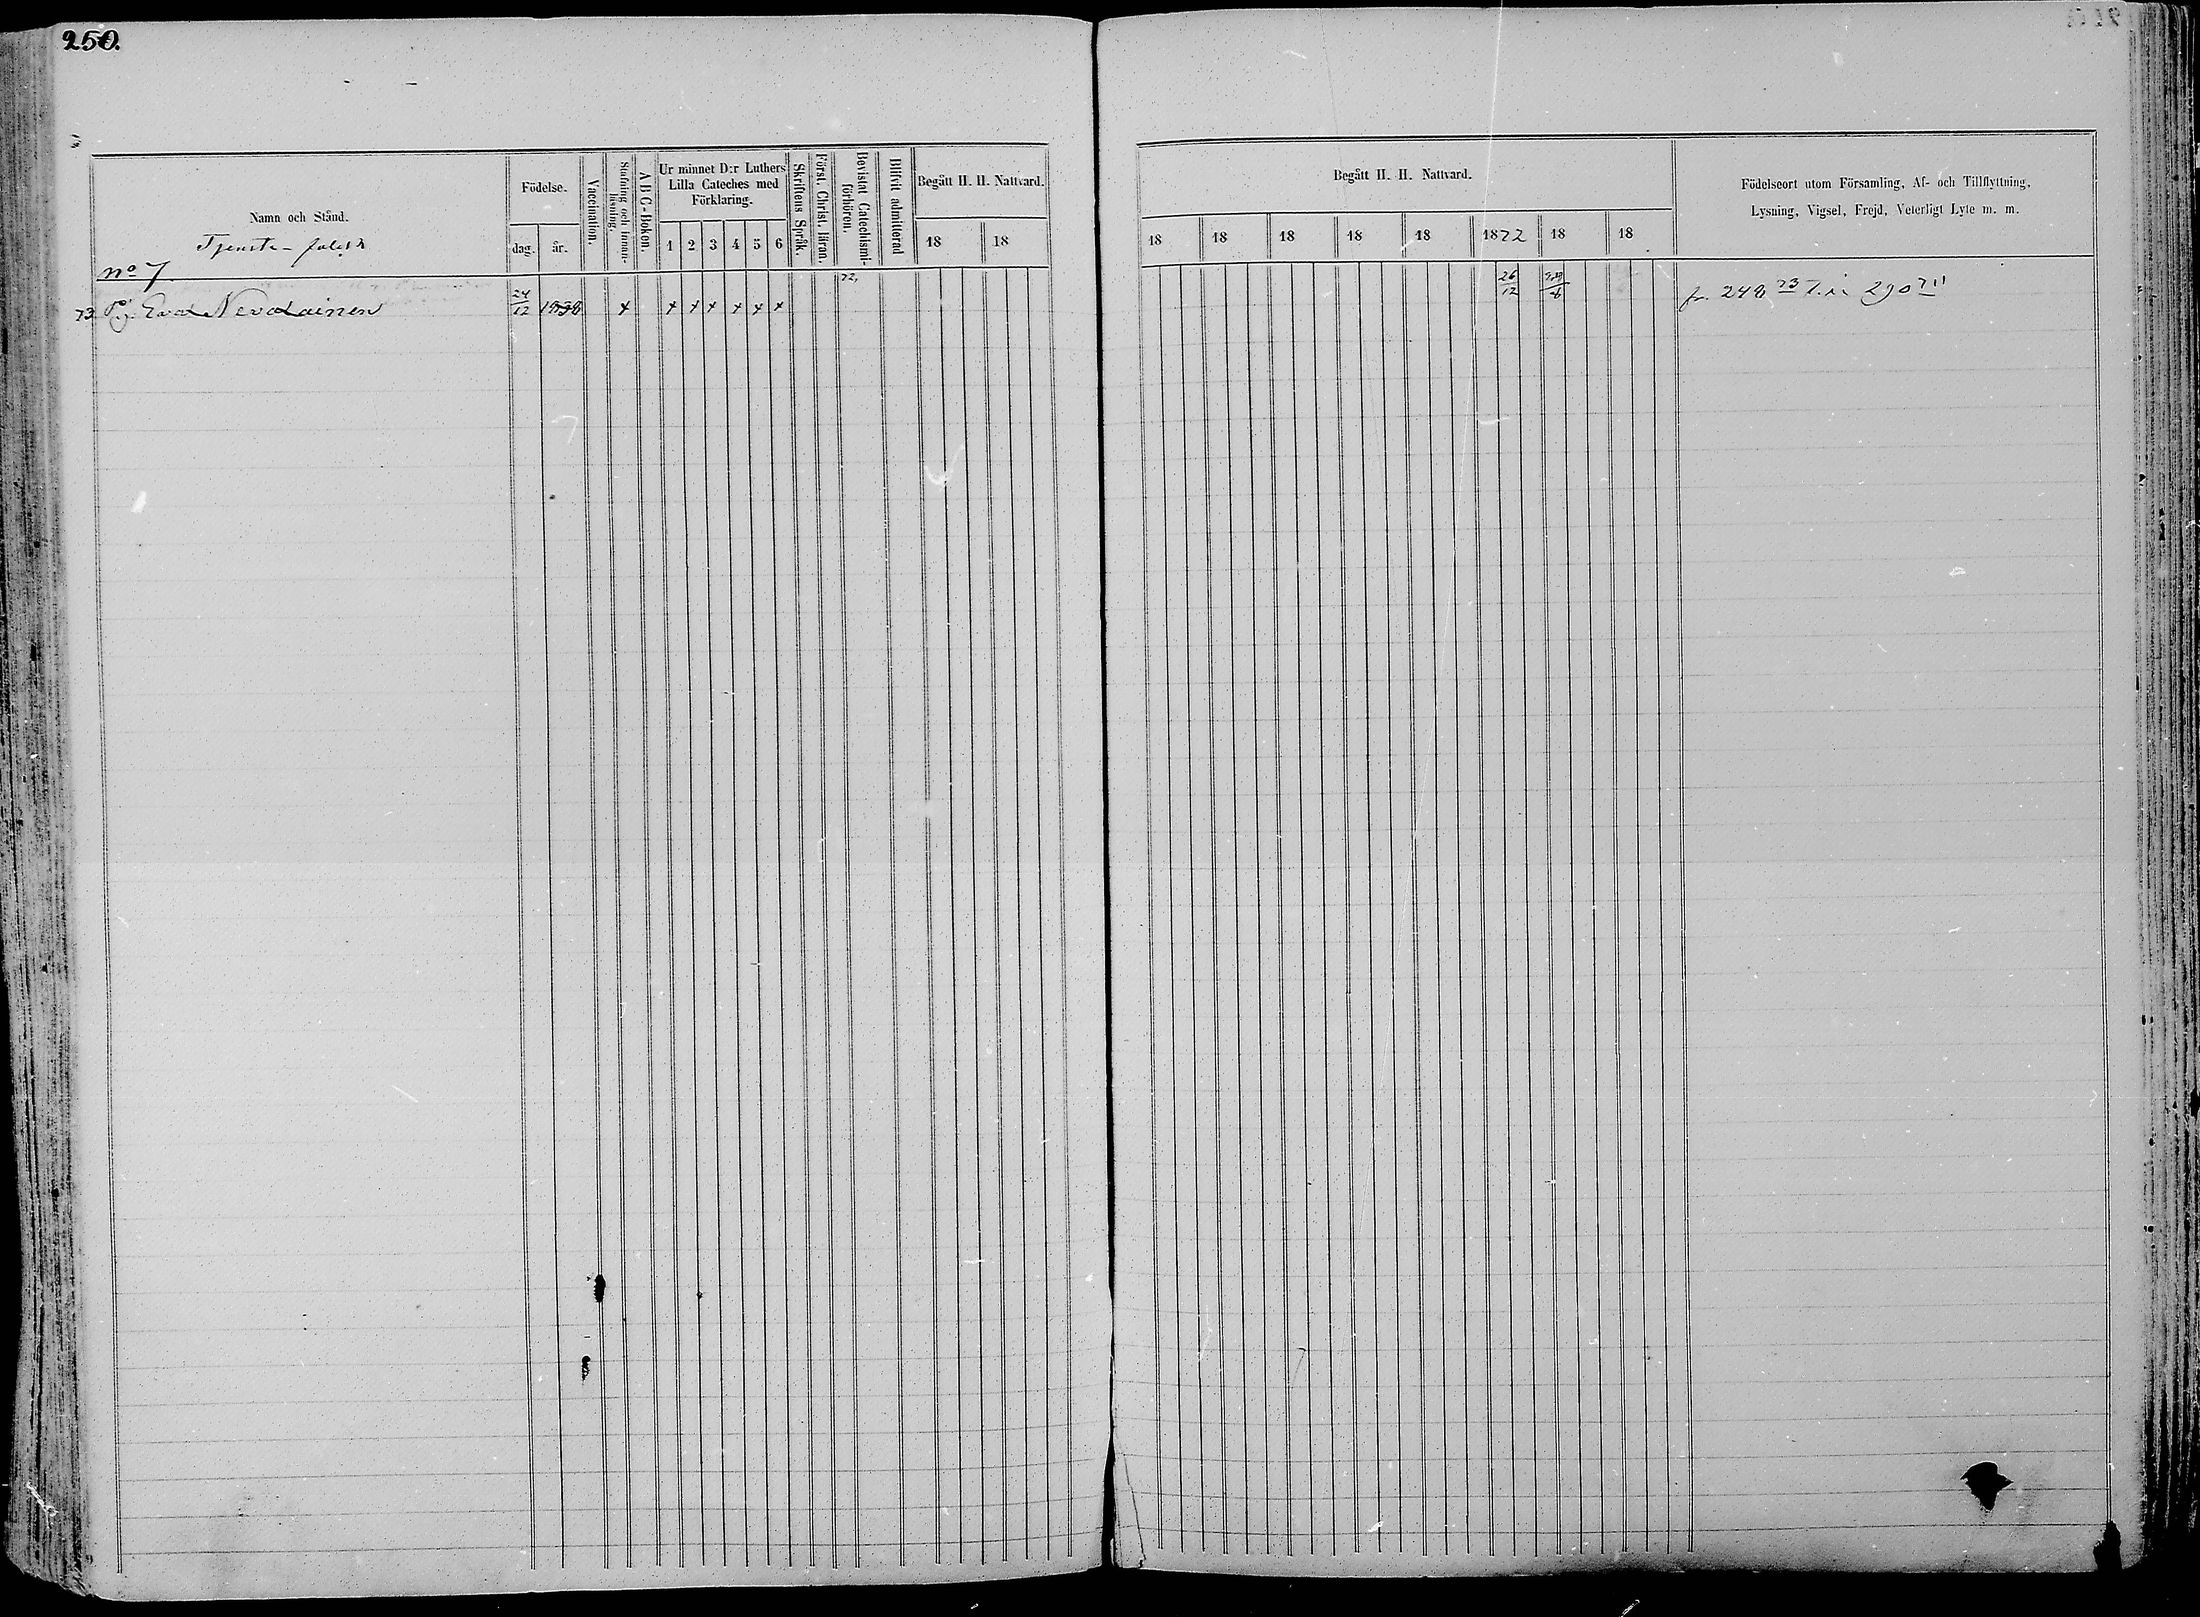 250.
Namn och Stånd.
Tjenste-folck
Födelse.
dag.
år.
Vaccination.
Stafning och Innan-
läsning,
A B C-Boken.
Ur minnet D:r Luthers
Lilla Cateches med
Förklaring.
1 2 3 4 5 6
Skriftens Språk.
Först. Christ. läran.
Bevistat Catechismi-
förhören.
Blifvit admitterad
Begått H. H. Nattvard.
18 18
Begått H. H. Nattvard.
18 18 18 18 18 1872 18 18
Födelseort utom Församling, Af- och Tillflyttning,
Lysning, Vigsel, Frejd, Veterligt Lyte m. m.
no 7
72,
73 Pig. Eva Nevalainen 24/12 + + + + + + + 26/12 fr. 248 73